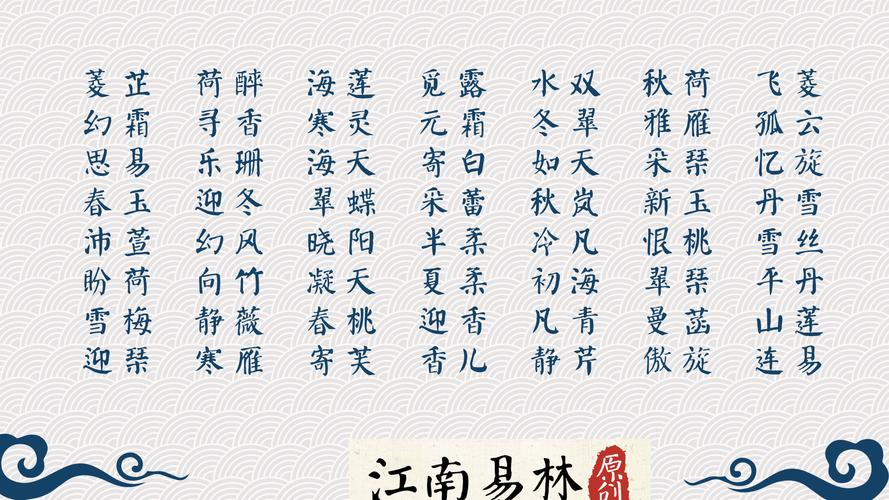 菱芷 荷醉 海莲 觅露 水双 秋荷 飞菱
幻霜 寻香 寒灵 元霜 冬翠 雅雁 孤云
思易 乐珊 海天 寄白 如天 采琴 忆旋
春玉 迎冬 翠蝶 采蕾 秋岚 新玉 丹雪
沛萱 幻风 晓阳 半柔 冷凡 恨桃 雪丝
盼荷 向竹 凝天 夏柔 初海 翠琴 平丹
雪梅 静薇 春桃 迎香 凡青 曼菡 山莲
迎琴 寒雁 寄芙 香儿 静芹 傲旋 连易
江南易林 原创